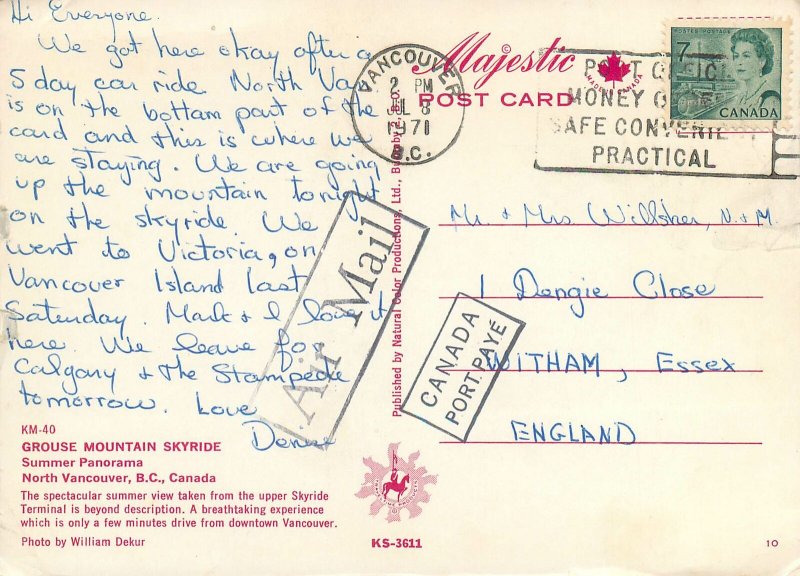 Hi Everyone.
We got here okay after a
5 day car ride North Van
is on the bottom part of the
card and this is where we
are staying. We are going
up the mountain tonight
on the skyride. We
went to Victoria, on
Vancouver Island last
Saturday. Mark & I love it
here. We leave for
Calgary & the Stampede
tomorrow. Love
Denise
KM-40
GROUSE MOUNTAIN SKYRIDE
Summer Panorama
North Vancouver, B.C., Canada
The spectacular summer view taken from the upper Skyride
Terminal is beyond description. A breathtaking experience
which is only a few minutes drive from downtown Vancouver.
Photo by William Dekur
Published by Natural Color Productions, Ltd., Burnaby 2, B.C.
VANCOUVER
2 PM
JUL 8
1971
B.C.
Majestic
POST CARD
MADE IN CANADA
POSTES POSTAGE
7
CANADA
POST OFFICE
MONEY
SAFE CONVENIENT
PRACTICAL
Air Mail
CANADA
PORT PAYÉ
Mr & Mrs Willsher, N. & M.
1 Dengie Close
WITHAM, Essex
ENGLAND
KS-3611
10